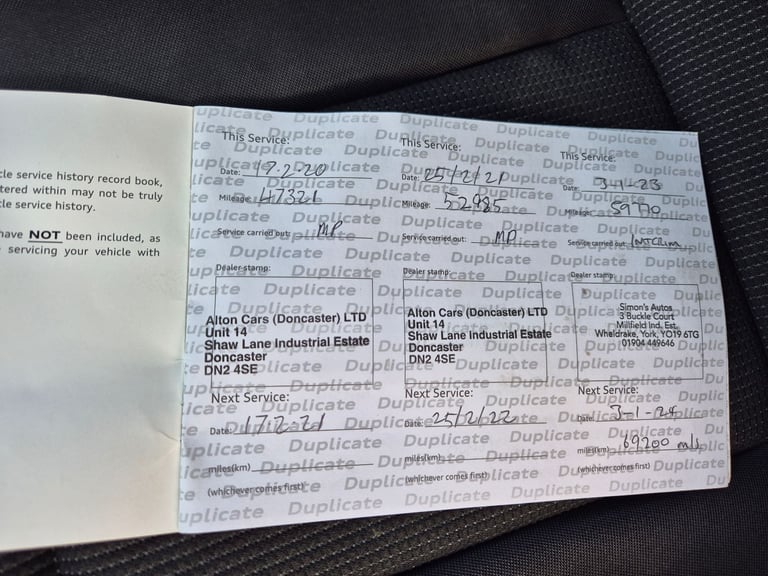 cle service history record book,
tered within may not be truly
cle service history.
have NOT been included, as
servicing your vehicle with
This Service:
Date: 17.2.20
Mileage: 47321
Service carried out: MP
Dealer stamp:
Alton Cars (Doncaster) LTD
Unit 14
Shaw Lane Industrial Estate
Doncaster
DN2 4SE
Next Service:
Date: 17.2.21
miles(km)
(whichever comes first)
This Service:
Date: 25/2/21
Mileage: 52985
Service carried out: MP
Dealer stamp:
Alton Cars (Doncaster) LTD
Unit 14
Shaw Lane Industrial Estate
Doncaster
DN2 4SE
Next Service:
Date: 25/2/22
miles(km)
(whichever comes first)
This Service:
Date: 3-1-23
Mileage:
Service carried out:
Dealer stamp:
Simon's Autos
3 Buckle Court
Millfield Ind. Est.
Wheldrake, York, YO19 6TG
01904 449646
Next Service:
Date: 3-1-24
miles(km) 69200 mls
(whichever comes first)
Duplicate